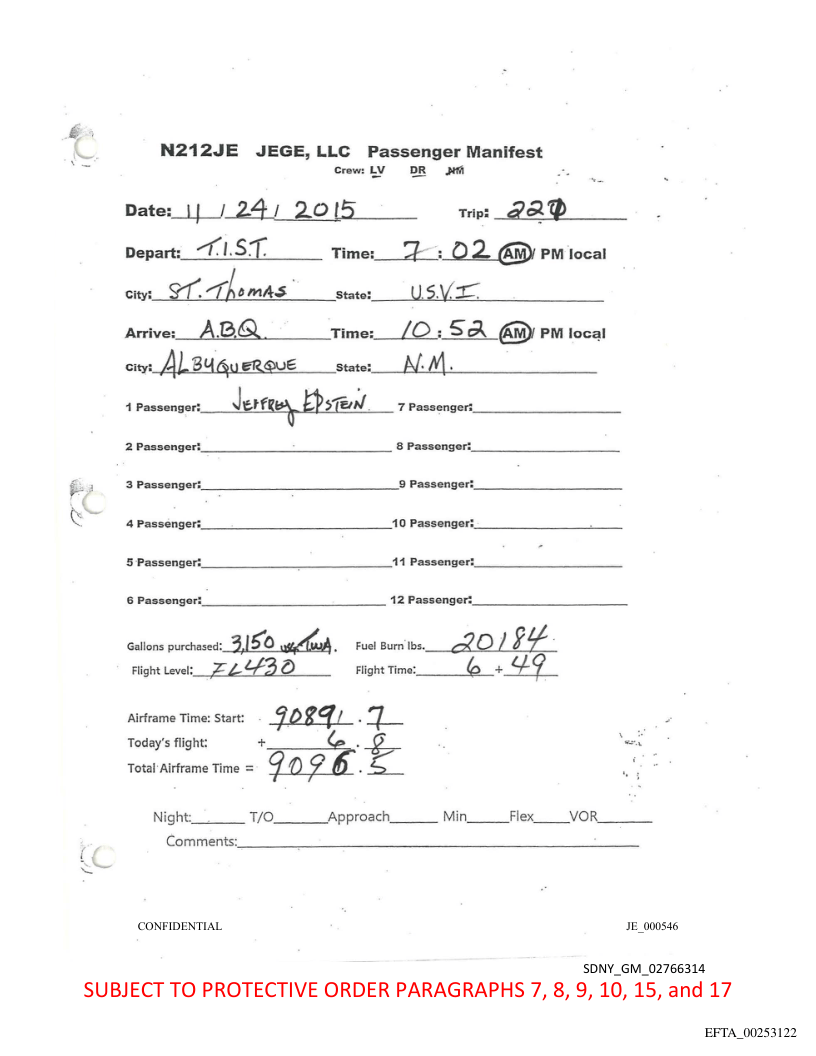 N212JE JEGE, LLC Passenger Manifest
Crew: LV DR NM
Date: 11 / 24 / 2015 Trip: 220
Depart: T.I.S.T. Time: 7 : 02 AM / PM local
City: ST. THOMAS State: U.S.V.I.
Arrive: A.B.Q. Time: 10 : 52 AM / PM local
City: ALBUQUERQUE State: N.M.
1 Passenger: JEFFREY EPSTEIN 7 Passenger:
2 Passenger: 8 Passenger:
3 Passenger: 9 Passenger:
4 Passenger: 10 Passenger:
5 Passenger: 11 Passenger:
6 Passenger: 12 Passenger:
Gallons purchased: 3,150 Fuel Burn lbs. 20184
Flight Level: FL430 Flight Time: 6 + 49
Airframe Time: Start: 9089 . 7
Today's flight: + 6 . 8
Total Airframe Time = 9096 . 5
Night: T/O Approach Min Flex VOR
Comments:
CONFIDENTIAL JE_000546
SDNY_GM_02766314
SUBJECT TO PROTECTIVE ORDER PARAGRAPHS 7, 8, 9, 10, 15, and 17
EFTA_00253122